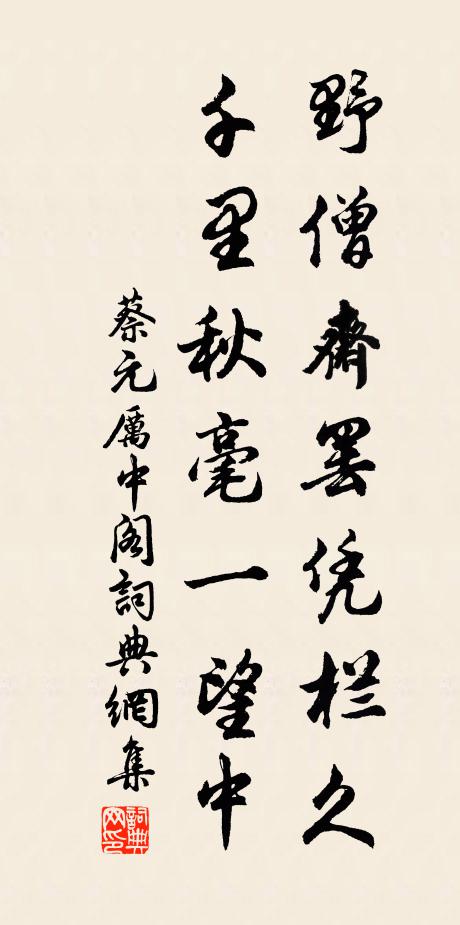 野僧齋罢凭栏久
千里秋毫一望中
蔡元厲中阁詞典網集
詞典网印